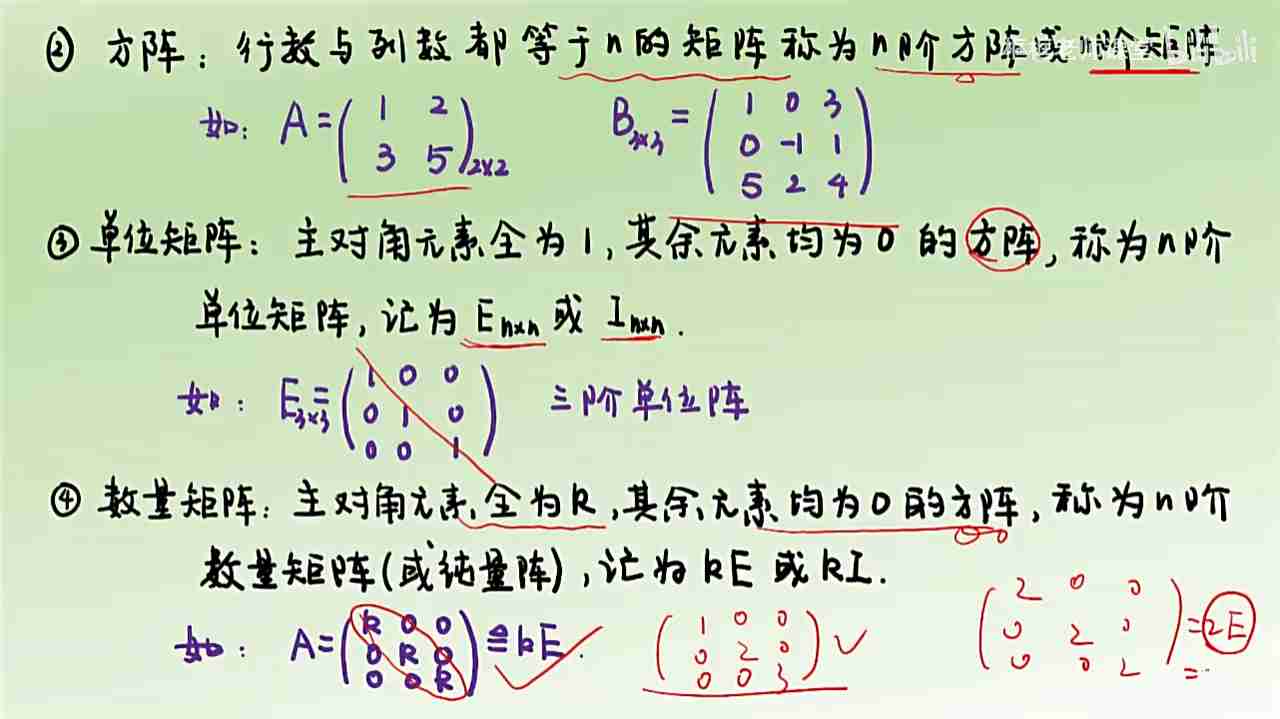 ② 方阵：行数与列数都等于n的矩阵称为n阶方阵或n阶矩阵
如：A=(1 2
3 5)2×2
B3×3=(1 0 3
0 -1 1
5 2 4)
③ 单位矩阵：主对角元素全为1，其余元素均为0的方阵，称为n阶
单位矩阵，记为En×n或In×n.
如：E3×3=(1 0 0
0 1 0
0 0 1)
三阶单位阵
④ 数量矩阵：主对角元素全为k，其余元素均为0的方阵，称为n阶
数量矩阵(或纯量阵)，记为kE或kI.
如：A=(k 0 0
0 k 0
0 0 k)≙kE.
(1 0 0
0 2 0
0 0 3)
(2 0 0
0 2 0
0 0 2)=2E